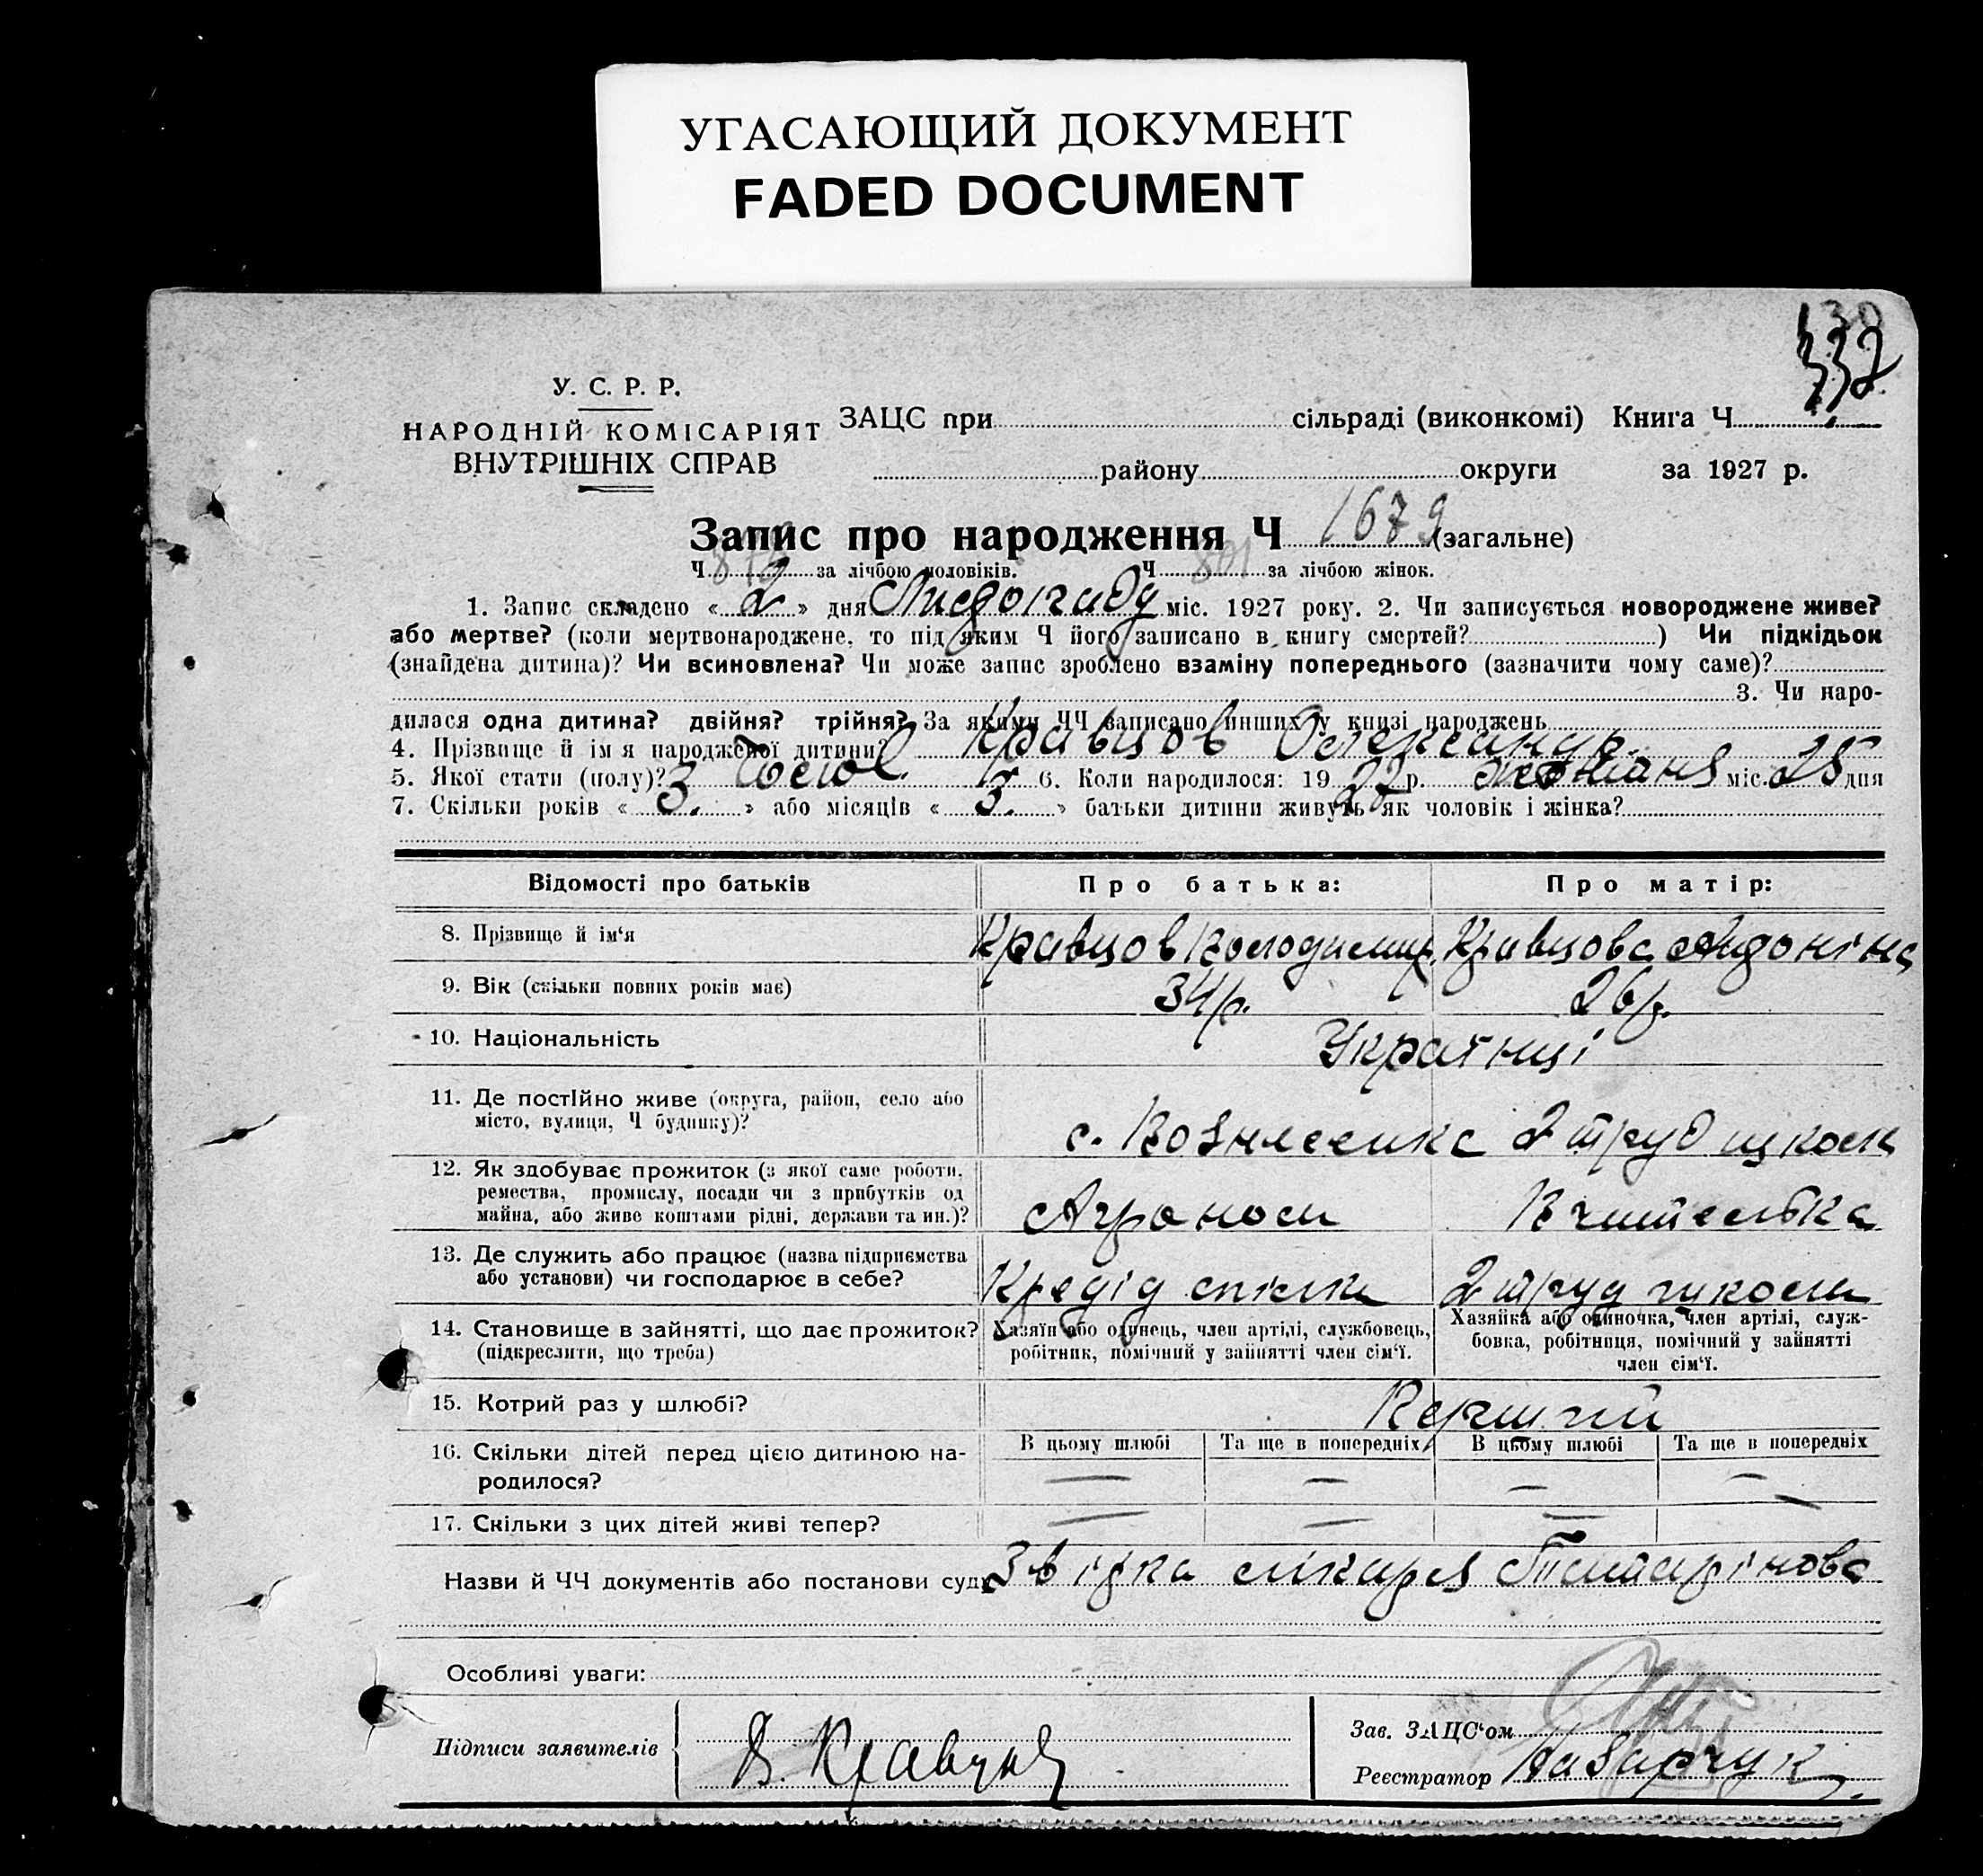 УГАСАЮЩИЙ ДОКУМЕНТ
FADED DOCUMENT
332
У. С. Р. Р.
НАРОДНІЙ КОМІСАРІЯТ
ВНУТРІШНІХ СПРАВ
ЗАЦС при сільраді (виконкомі) Книга Ч
району округи за 1927 р.
Запис про народження Ч 1679 (загальне)
Ч 878 за лічбою чоловіків. Ч 801 за лічбою жінок.
1. Запис складено « 2 » дня Листопаду міс. 1927 року. 2. Чи записується новороджене живе?
або мертве? (коли мертвонароджене, то під яким Ч його записано в книгу смертей? ) Чи підкідьок
(знайдена дитина)? Чи всиновлена? Чи може запис зроблено взаміну попереднього (зазначити чому саме)?
3. Чи наро-
дилася одна дитина? двійня? трійня? За якими ЧЧ записано инших у книзі народжень
4. Прізвище й ім я народженої дитини? Кравцов Олександр
5. Якої стати (полу)? Чолов. 6. Коли народилося: 1927 р. жовтня міс. 25 дня
7. Скільки років « 3. » або місяців « 3. » батьки дитини живуть як чоловік і жінка?
Відомості про батьків Про батька: Про матір:
8. Прізвище й ім'я Кравцов Володимир. Кравцова Антоніна
9. Вік (скільки повних років має) 34 р. 26 р.
10. Національність Українці
11. Де постійно живе (округа, район, село або
місто, вулиця, Ч будинку)? с. Вознесенка 2 труд школа
12. Як здобуває прожиток (з якої саме роботи,
ремества, промислу, посади чи з прибутків од
майна, або живе коштами рідні, держави та ин.)? Агроном Вчителька
13. Де служить або працює (назва підприємства
або установи) чи господарює в себе? Кредід спілка 2 труд школа
14. Становище в зайнятті, що дає прожиток?
(підкреслити, що треба)
Хазяїн або одинець, член артілі, службовець,
робітник, помічний у зайнятті член сім'ї.
Хазяйка або одиночка, член артілі, служ-
бовка, робітниця, помічний у зайнятті
член сім'ї.
15. Котрий раз у шлюбі? Перший
16. Скільки дітей перед цією дитиною на-
родилося?
В цьому шлюбі Та ще в попередніх В цьому шлюбі Та ще в попередніх
— — — —
17. Скільки з цих дітей живі тепер? — — — —
Назви й ЧЧ документів або постанови суду Звідка лікаря
Особливі уваги:
Підписи заявителів В. Кравцов
Зав. ЗАЦС'ом
Реєстратор Назарчук